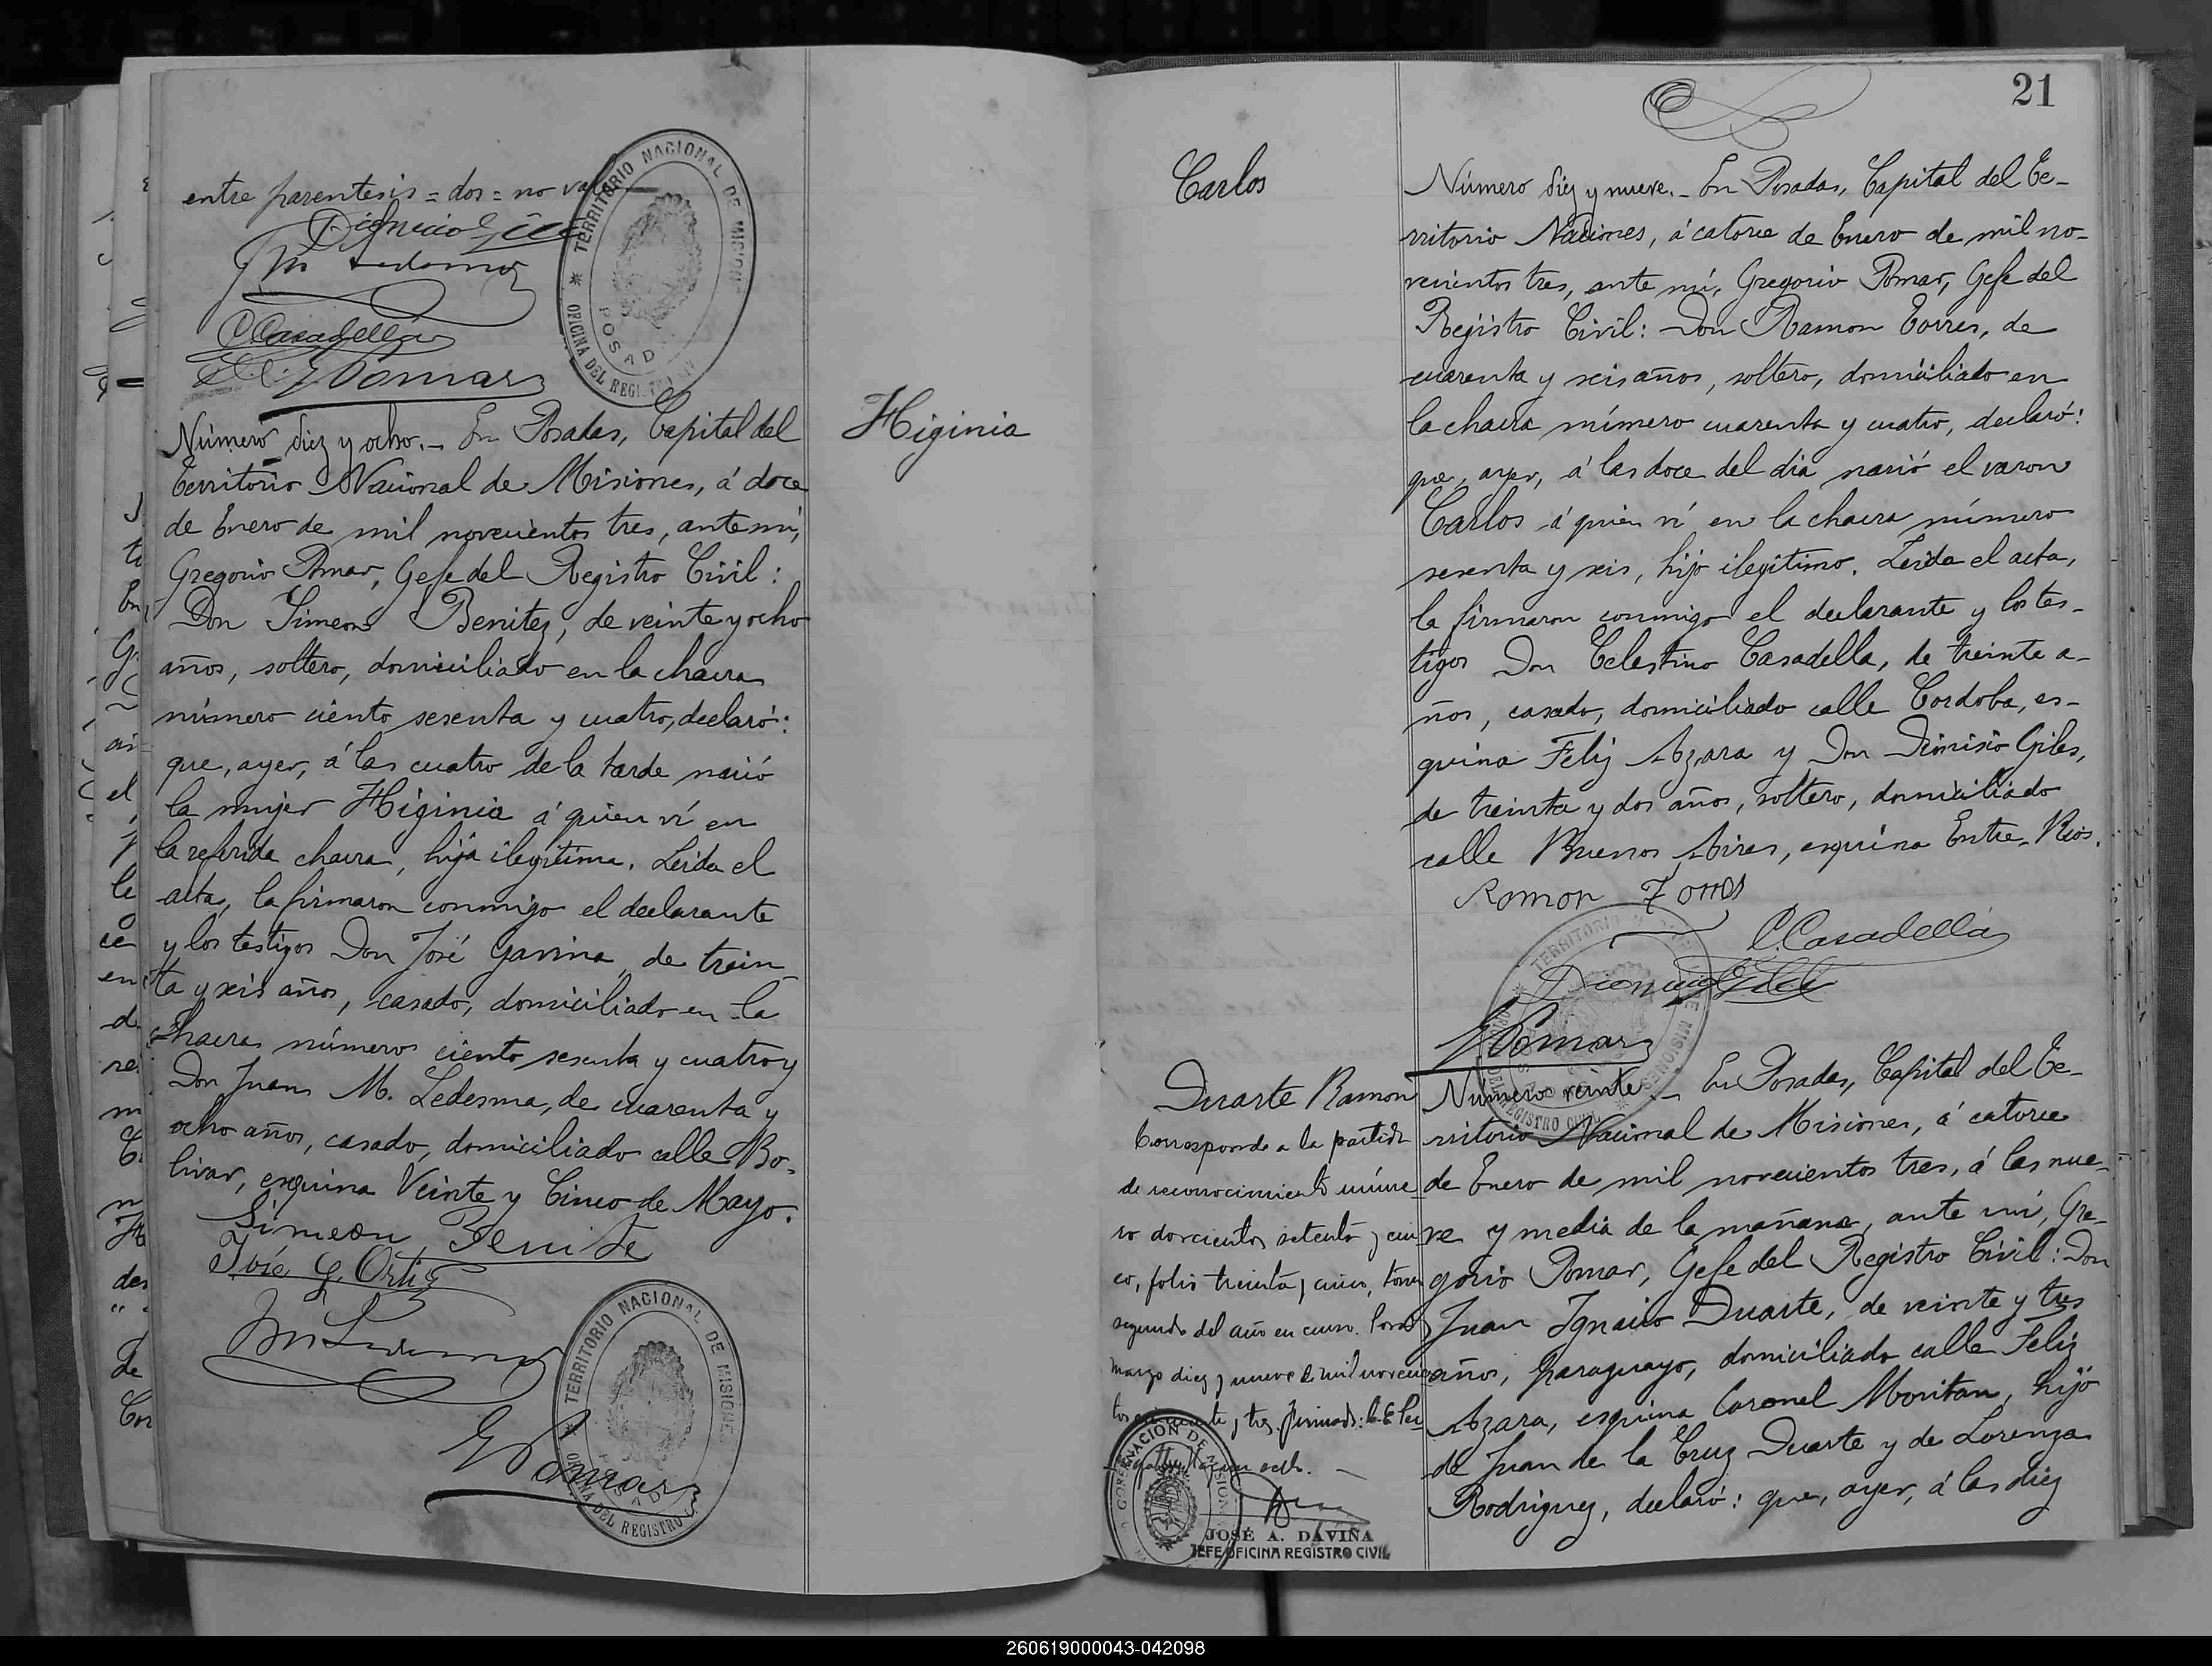 entre parentesis = dos = no vale
Dionicio Giles
Jn Ledesma
C Casadellá
G Pomar
TERRITORIO NACIONAL DE MISIONES
POSADAS
OFICINA DEL REGISTRO CIVIL
Número diez y ocho._ En Posadas, Capital del
Territorio Nacional de Misiones, á doce
de Enero de mil novecientos tres, ante mí,
Gregorio Pomar, Gefe del Registro Civil:
Don Simeon Benitez, de veinte y ocho
años, soltero, domiciliado en la chacra
número ciento sesenta y cuatro, declaró:
que, ayer, á las cuatro de la tarde nació
la mujer Higinia á quien ví en
la referida chacra, hija ilegítima. Leida el
acta, la firmaron conmigo el declarante
y los testigos Don José Gavina, de trein
ta y seis años, casado, domiciliado en la
chacra número ciento sesenta y cuatro y
Don Juan M. Ledesma, de cuarenta y
ocho años, casado, domiciliado calle Bo-
livar, esquina Veinte y Cinco de Mayo.
Simeon Benite
José G. Ortiz
Jn Ledesma
G Pomar
TERRITORIO NACIONAL DE MISIONES
POSADAS
OFICINA DEL REGISTRO CIVIL
Higinia
21
Carlos
Número diez y nueve._ En Posadas, Capital del Te-
rritorio Naciones, á catorce de Enero de mil no-
vecientos tres, ante mí, Gregorio Pomar, Gefe del
Registro Civil: Don Ramon Torres, de
cuarenta y seis años, soltero, domiciliado en
la chacra número cuarenta y cuatro, declaró:
que, ayer, á las doce del dia nació el varon
Carlos á quien ví en la chacra número
sesenta y seis, hijo ilegítimo. Leida el acta,
la firmaron conmigo el declarante y los tes-
tigos Don Celestino Casadella, de treinta a-
ños, casado, domiciliado calle Cordoba, es-
quina Feliz Azara y Don Dionisio Giles,
de treinta y dos años, soltero, domiciliado
calle Buenos Aires, esquina Entre-Rios.
Ramon Torres
C. Casadellá
Dionicio Giles
G Pomar
TERRITORIO NACIONAL DE MISIONES
OFICINA DEL REGISTRO CIVIL
Duarte Ramón
Corresponde a la partida
de reconocimiento núme
ro doscientos setenta y cin
co, folio treinta y cinco, tomo
segundo del año en curso. Posadas
marzo diez y nueve de mil novecien
tos y tres. firmado:
GOBERNACION DE MISIONES
JOSÉ A. DAVIÑA
JEFE OFICINA REGISTRO CIVIL
Número veinte._ En Posadas, Capital del Te-
rritorio Nacional de Misiones, á catorce
de Enero de mil novecientos tres, á las nue-
ve y media de la mañana, ante mí, Gre-
gorio Pomar, Gefe del Registro Civil: Don
Juan Ignacio Duarte, de veinte y tres
años, paraguayo, domiciliado calle Feliz
Azara, esquina Coronel Moritan, hijo
de Juan de la Cruz Duarte y de Lorenza
Rodriguez, declaró: que, ayer, á las diez
260619000043-042098